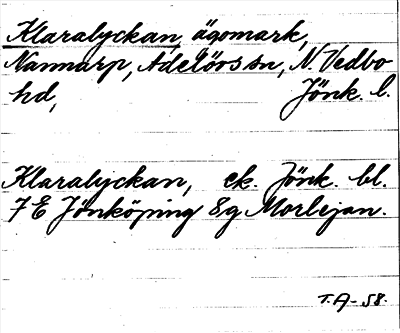 Klaralyckan, ägomark,
Nannarp, Adelövssn, N. Vedbo
hd, Jönk. l.
Klaralyckan, ek. Jönk. bl.
7 E Jönköping 8g Morlejan.
T.A-58.